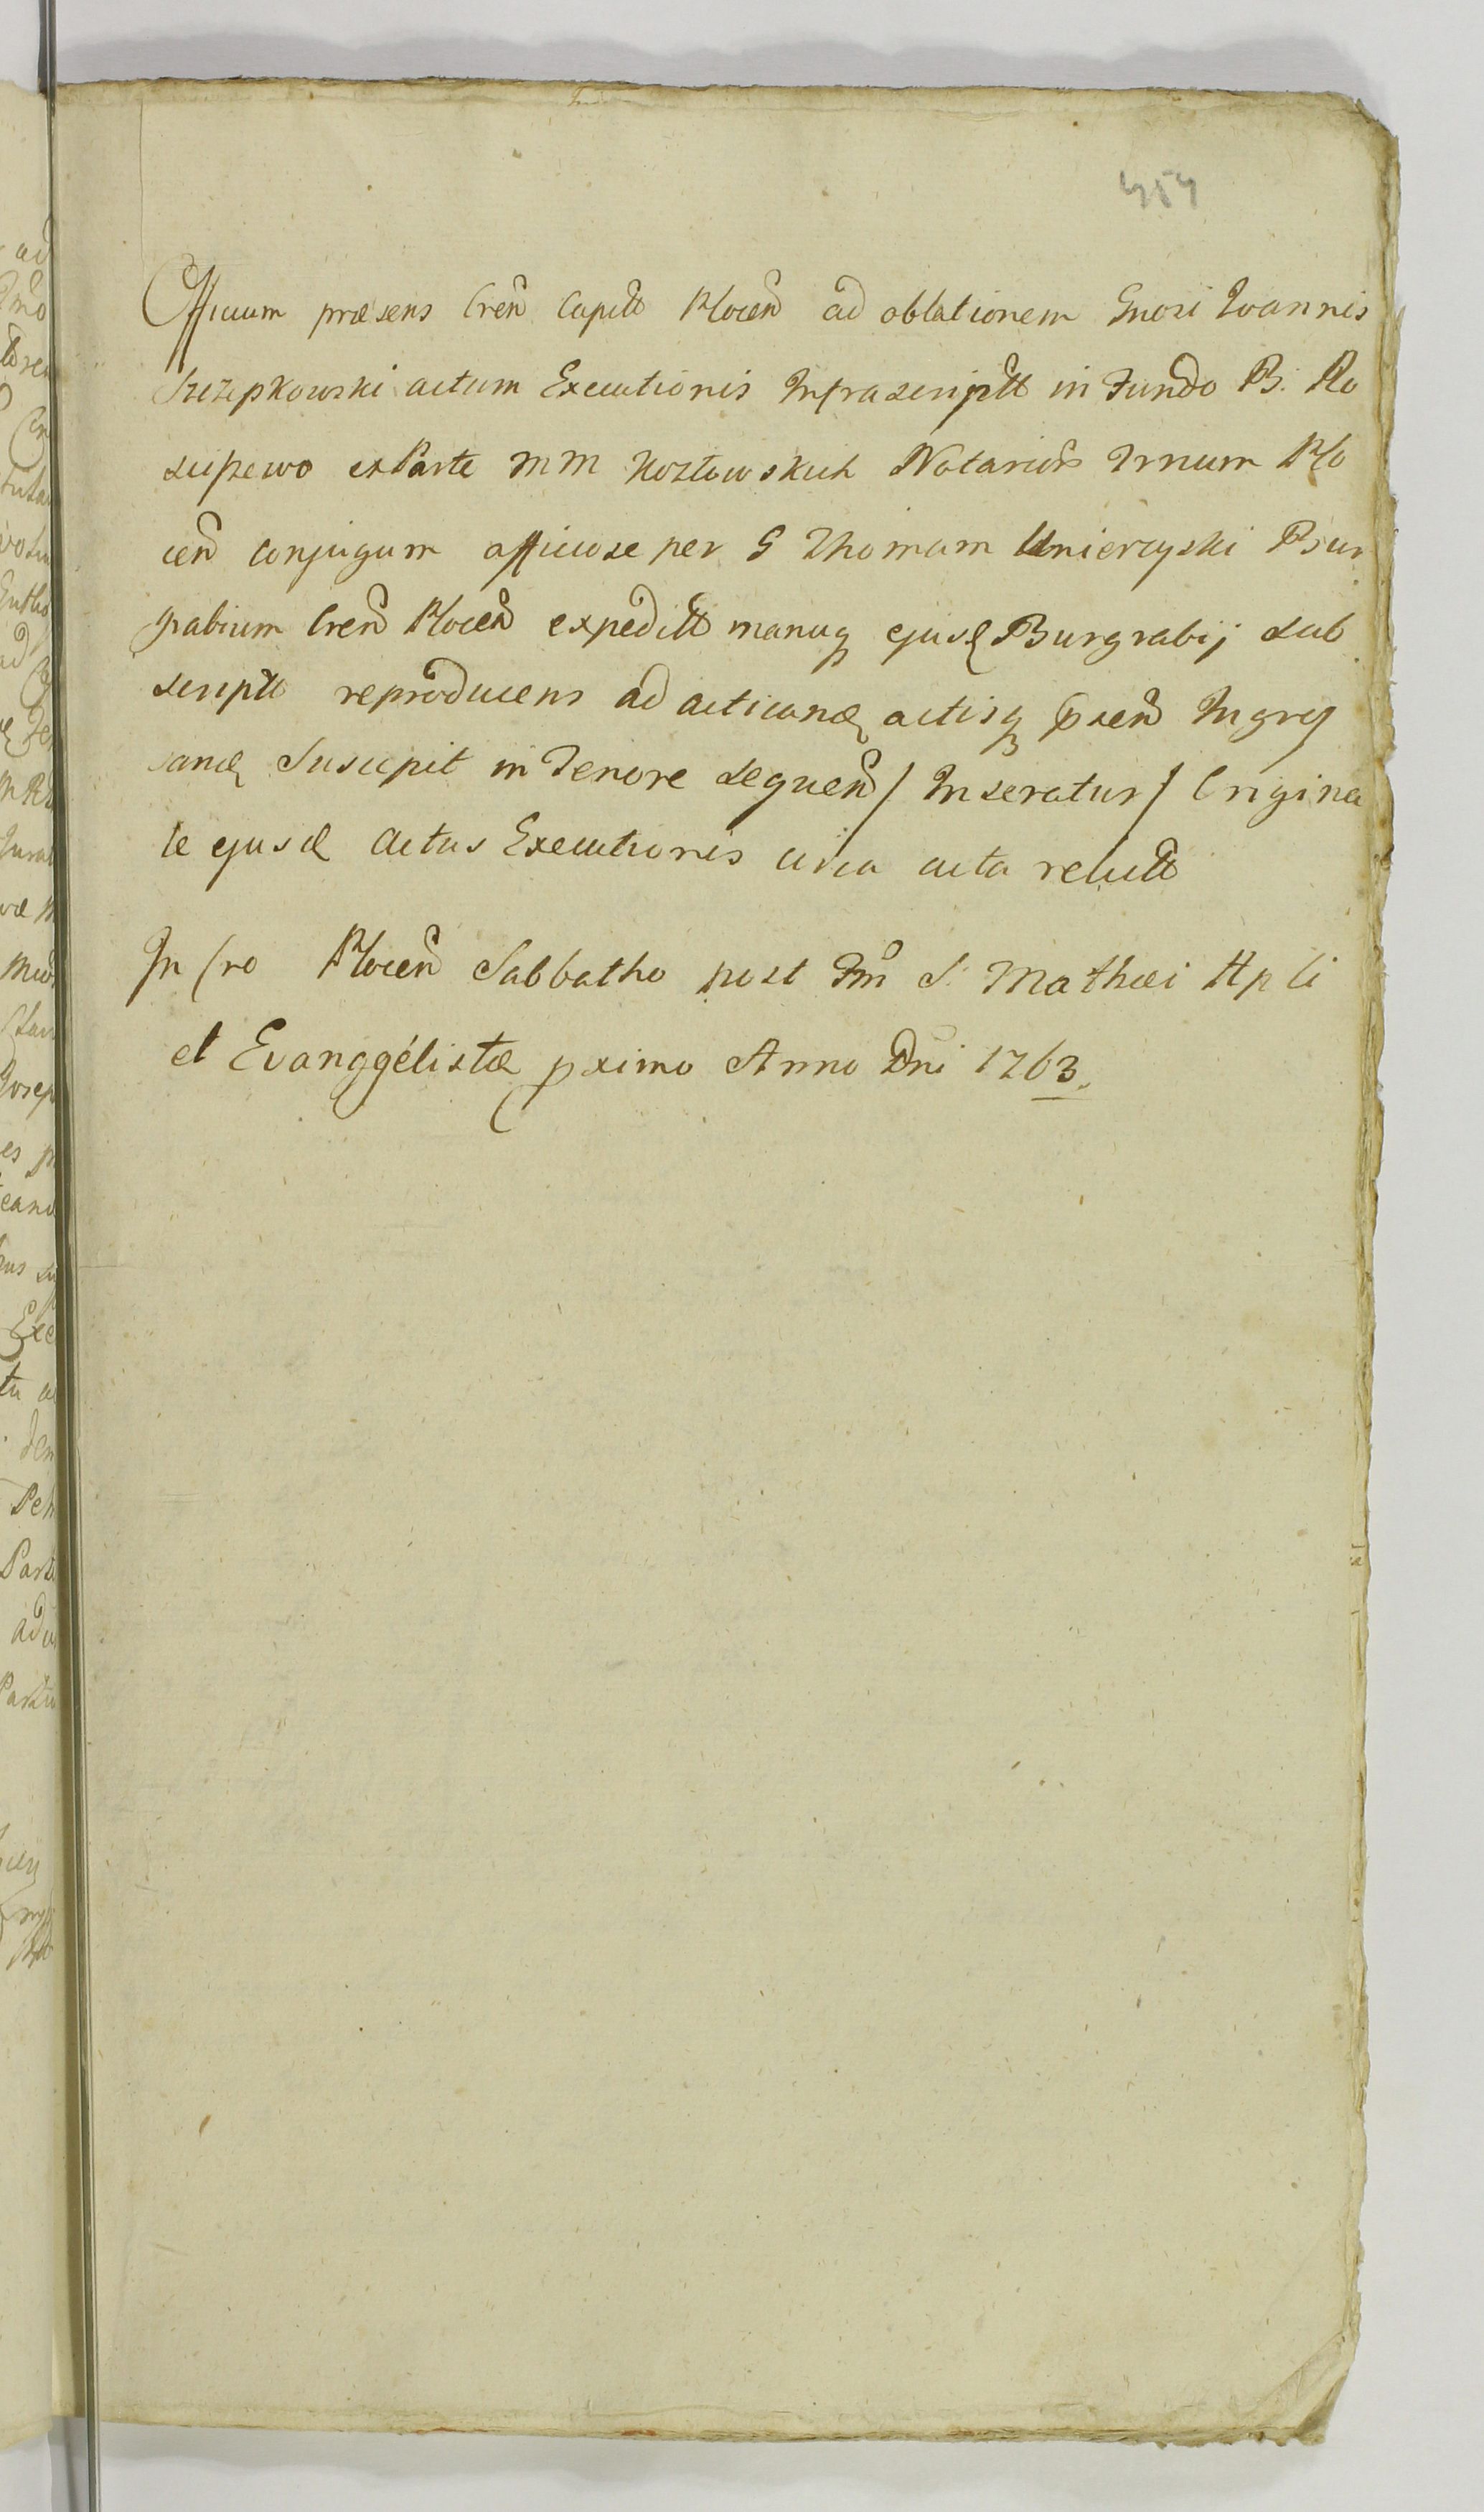 454
Officium præsens Cren Capitt Plocen ad oblationem Gnosi Joannis
Szczepkowski actum Executionis Infrascriptt in Fundo B. Ro
scipewo ex Parte MM Kozłowskich Notarior Trnum Plo
cen conjugum officiose per G Thomam Unierzyski Bur
grabium Cren Plocen expeditt manuq ejusd Burgrabij sub
scriptt reproducens ad acticand actisq psen Ingros
sand Suscepit in Tenore sequen / Inseratur / Origina
le ejusd Actus Executionis circa acta relictt
In Cro Plocen Sabbatho post Fm S. Mathæi Apli
et Evanggelistæ pximo Anno Dni 1763.